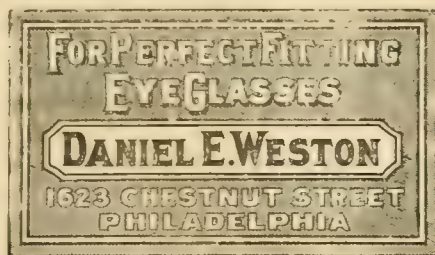 FOR PERFECT FITTING
EYEGLASSES
DANIEL E. WESTON
1623 CHESTNUT STREET
PHILADELPHIA